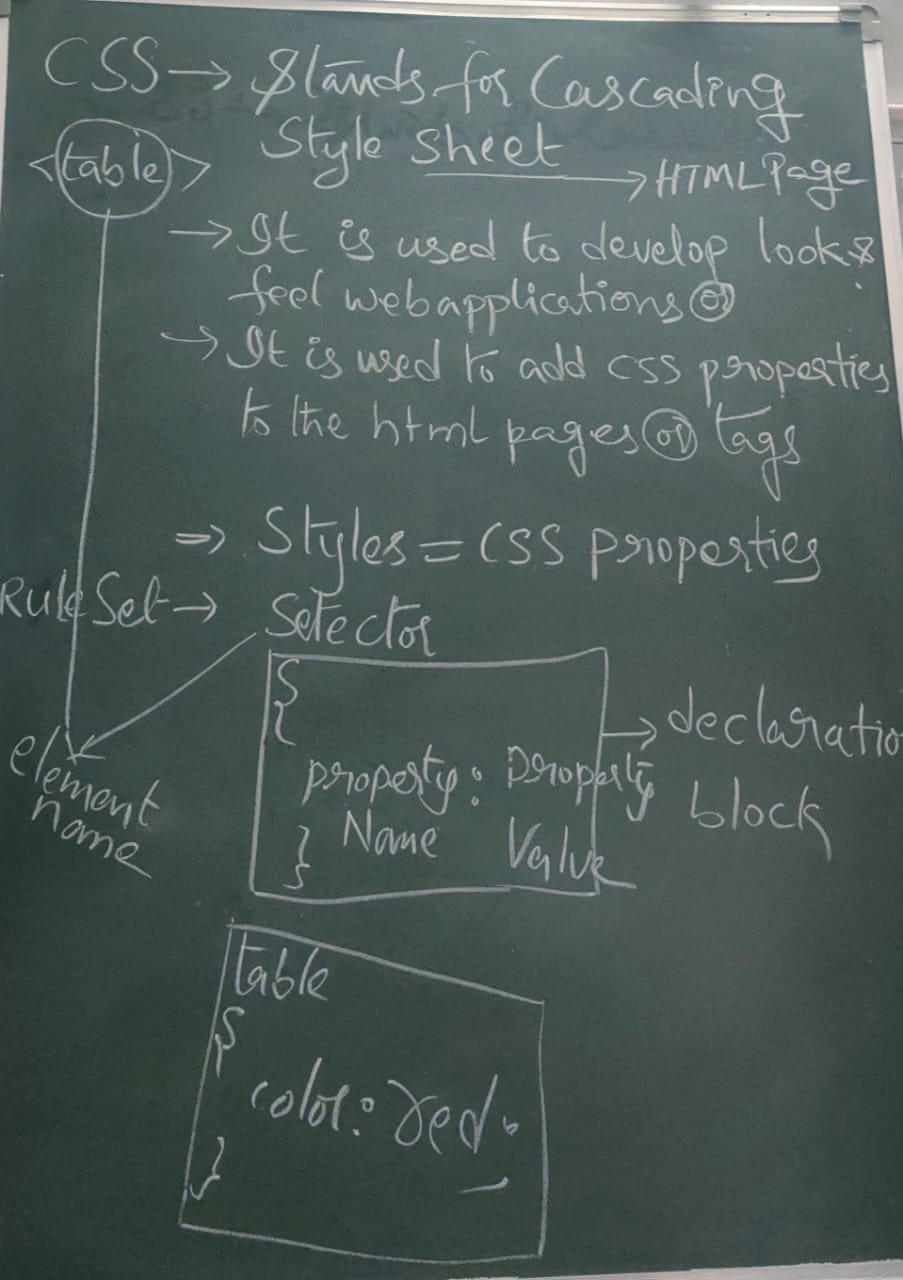 CSS → Stands for Cascading
<table> Style Sheet → HTML Page
→ It is used to develop look &
feel webapplications or
→ It is used to add css properties
to the html pages or tags
⇒ Styles = CSS properties
RuleSet → Selector
{
→ declaration
property: property
block
Name Value
}
element
name
table
{
color: red;
}